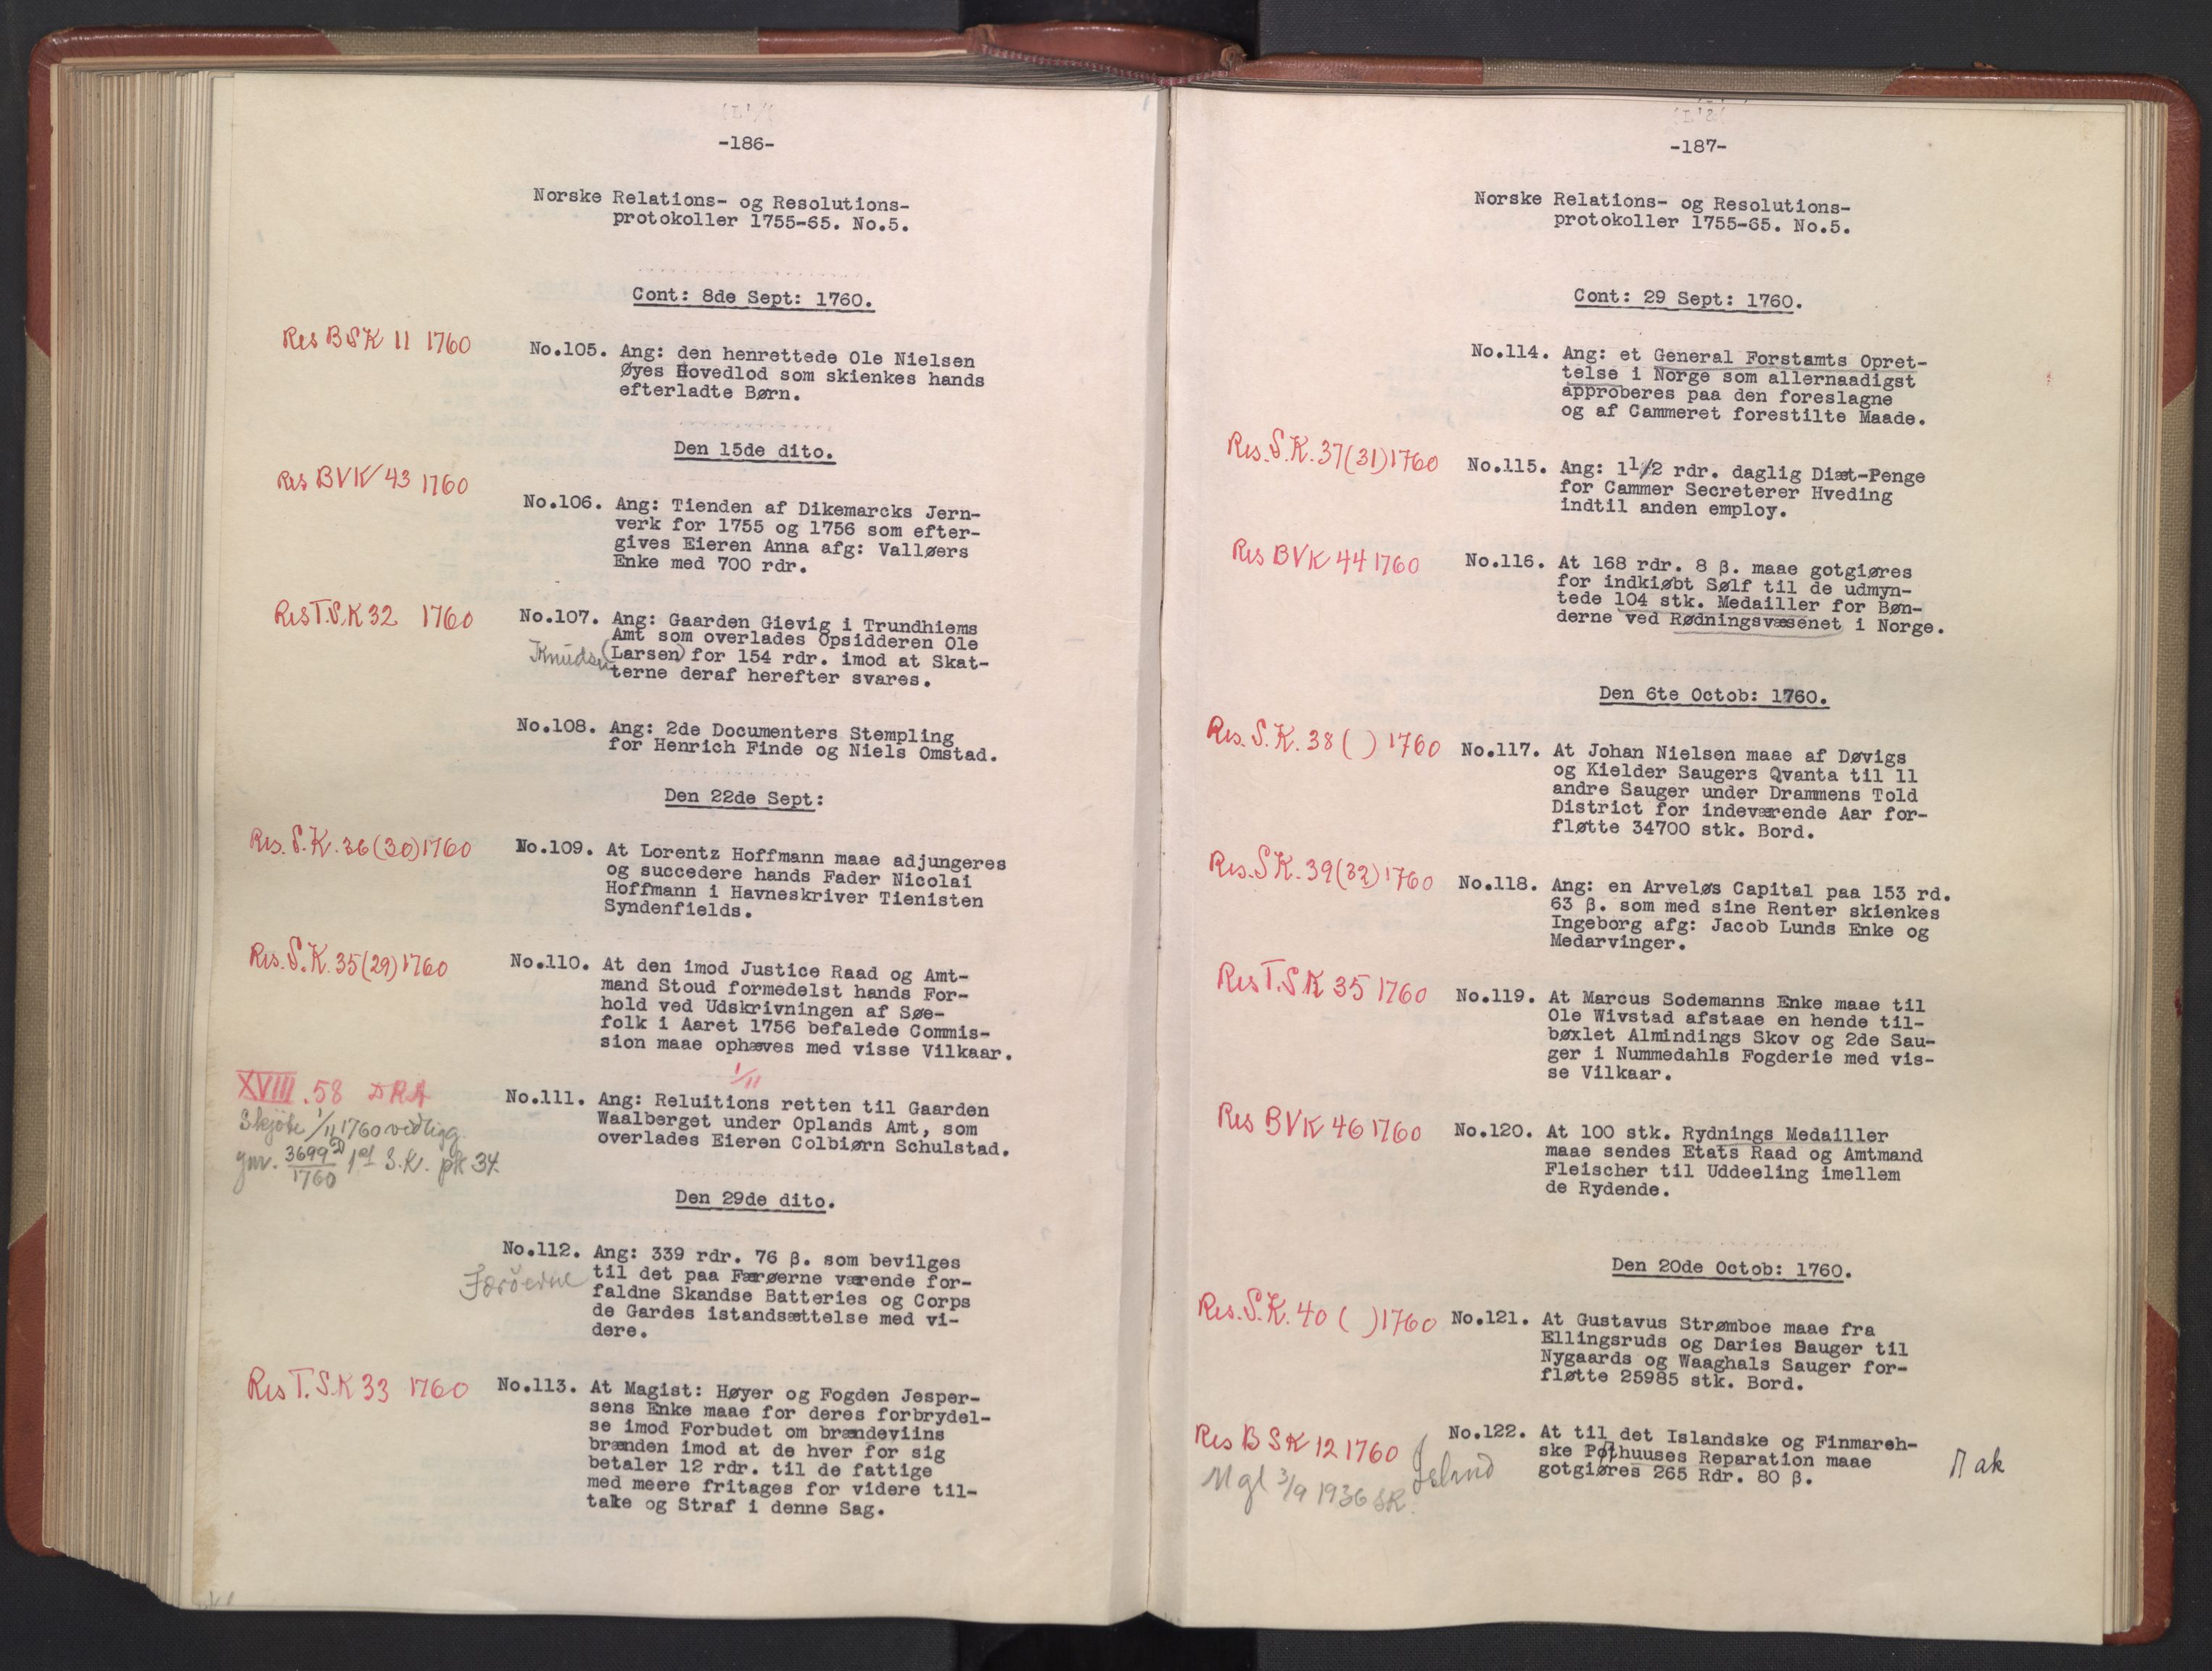 -186-
Norske Relations- og Resolutions-
protokoller 1755-65. No.5.
Cont: 8de Sept: 1760.
Res BSK 11 1760
No.105. Ang: den henrettede Ole Nielsen
Øyes Hovedlod som skienkes hands
efterladte Børn.
Den 15de dito.
Res BVK 43 1760
No.106. Ang: Tienden af Dikemarcks Jern-
verk for 1755 og 1756 som efter-
gives Eieren Anna afg: Valløers
Enke med 700 rdr.
Res T.S.K 32 1760
No.107. Ang: Gaarden Gievig i Trundhiems
Amt som overlades Opsidderen Ole
Knudsen (Larsen) for 154 rdr. imod at Skat-
terne deraf herefter svares.
No.108. Ang: 2de Documenters Stempling
for Henrich Finde og Niels Omstad.
Den 22de Sept:
Res. S.K. 36(30)1760
No.109. At Lorentz Hoffmann maae adjungeres
og succedere hands Fader Nicolai
Hoffmann i Havneskriver Tienisten
Syndenfields.
Res. S.K. 35(29)1760
No.110. At den imod Justice Raad og Amt-
mand Stoud formedelst hands For-
hold ved Udskrivningen af Søe-
folk i Aaret 1756 befalede Commis-
sion maae ophæves med visse Vilkaar.
1/11
XVIII.58 DRA
Skjöte 1/11 1760 vedligg.
No.111. Ang: Reluitions retten til Gaarden
Waalberget under Oplands Amt, som
overlades Eieren Colbiørn Schulstad.
jnr. 3699 D/1760 S.K. pk 34.
Den 29de dito.
No.112. Ang: 339 rdr. 76 β. som bevilges
Færöerne til det paa Færøerne værende for-
faldne Skandse Batteries og Corps
de Gardes istandsættelse med vi-
dere.
Res T.S.K 33 1760
No.113. At Magist: Høyer og Fogden Jesper-
sens Enke maae for deres forbrydel-
se imod Forbudet om brændeviins
brænden imod at de hver for sig
betaler 12 rdr. til de fattige
med meere fritages for videre til-
tale og Straf i denne Sag.
-187-
Norske Relations- og Resolutions-
protokoller 1755-65. No.5.
Cont: 29 Sept: 1760.
No.114. Ang: et General Forstamts Opret-
telse i Norge som allernaadigst
approberes paa den foreslagne
og af Cammeret forestilte Maade.
Res. S.K. 37(31)1760
No.115. Ang: 1 1/2 rdr. daglig Diæt-Penge
for Cammer Secreterer Hveding
indtil anden employ.
Res BVK 44 1760
No.116. At 168 rdr. 8 β. maae gotgiøres
for indkiøbt Sølf til de udmyn-
tede 104 stk. Medailler for Bøn-
derne ved Rødningsvæsenet i Norge.
Den 6te Octob: 1760.
Res. S.K. 38 ( ) 1760
No.117. At Johan Nielsen maae af Døvigs
og Kielder Saugers Qvanta til 11
andre Sauger under Drammens Told
District for indeværende Aar for-
fløtte 34700 stk. Bord.
Res. S.K. 39(32)1760
No.118. Ang: en Arveløs Capital paa 153 rd.
63 β. som med sine Renter skienkes
Ingeborg afg: Jacob Lunds Enke og
Medarvinger.
Res T.S.K 35 1760
No.119. At Marcus Sodemanns Enke maae til
Ole Wivstad afstaae en hende til-
bøxlet Almindings Skov og 2de Sau-
ger i Nummedahls Fogderie med vis-
se Vilkaar.
Res BVK 46 1760
No.120. At 100 stk. Rydnings Medailler
maae sendes Etats Raad og Amtmand
Fleischer til Uddeeling imellem
de Rydende.
Den 20de Octob: 1760.
Res. S.K. 40 ( )1760
No.121. At Gustavus Strømboe maae fra
Ellingsruds og Daries Sauger til
Nygaards og Waaghals Sauger for-
fløtte 25985 stk. Bord.
Res BSK 12 1760
No.122. At til det Islandske og Finmareh-
ske Pakhuuses Reparation maae
gotgiøres 265 Rdr. 80 β.
Γ ak
Island
Mgl 3/9 1936 SR.